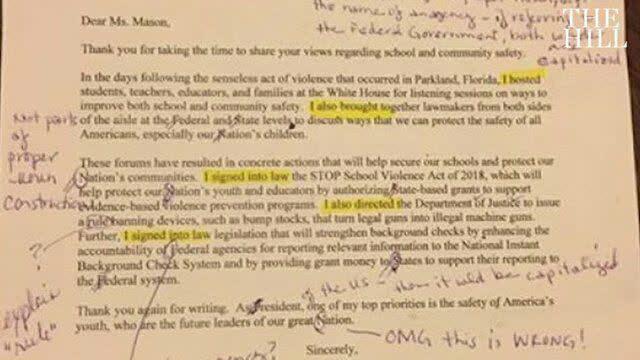 the name of an agency - if referring to
Dear Ms. Mason,
the Federal Government, both words
THE
HILL
capitalized
Thank you for taking the time to share your views regarding school and community safety.
In the days following the senseless act of violence that occurred in Parkland, Florida, I hosted
students, teachers, educators, and families at the White House for listening sessions on ways to
improve both school and community safety. I also brought together lawmakers from both sides
of the aisle at the Federal and State levels to discuss ways that we can protect the safety of all
Americans, especially our Nation's children.
Not part
of
proper
noun
construction
These forums have resulted in concrete actions that will help secure our schools and protect our
Nation's communities. I signed into law the STOP School Violence Act of 2018, which will
help protect our Nation's youth and educators by authorizing State-based grants to support
evidence-based violence prevention programs. I also directed the Department of Justice to issue
a rule banning devices, such as bump stocks, that turn legal guns into illegal machine guns.
Further, I signed into law legislation that will strengthen background checks by enhancing the
accountability of Federal agencies for reporting relevant information to the National Instant
Background Check System and by providing grant money to States to support their reporting to
the Federal system.
?
explain
"rule"
of the US - then it would be capitalized
Thank you again for writing. As President, one of my top priorities is the safety of America's
youth, who are the future leaders of our great Nation.
OMG this is WRONG!
Sincerely,